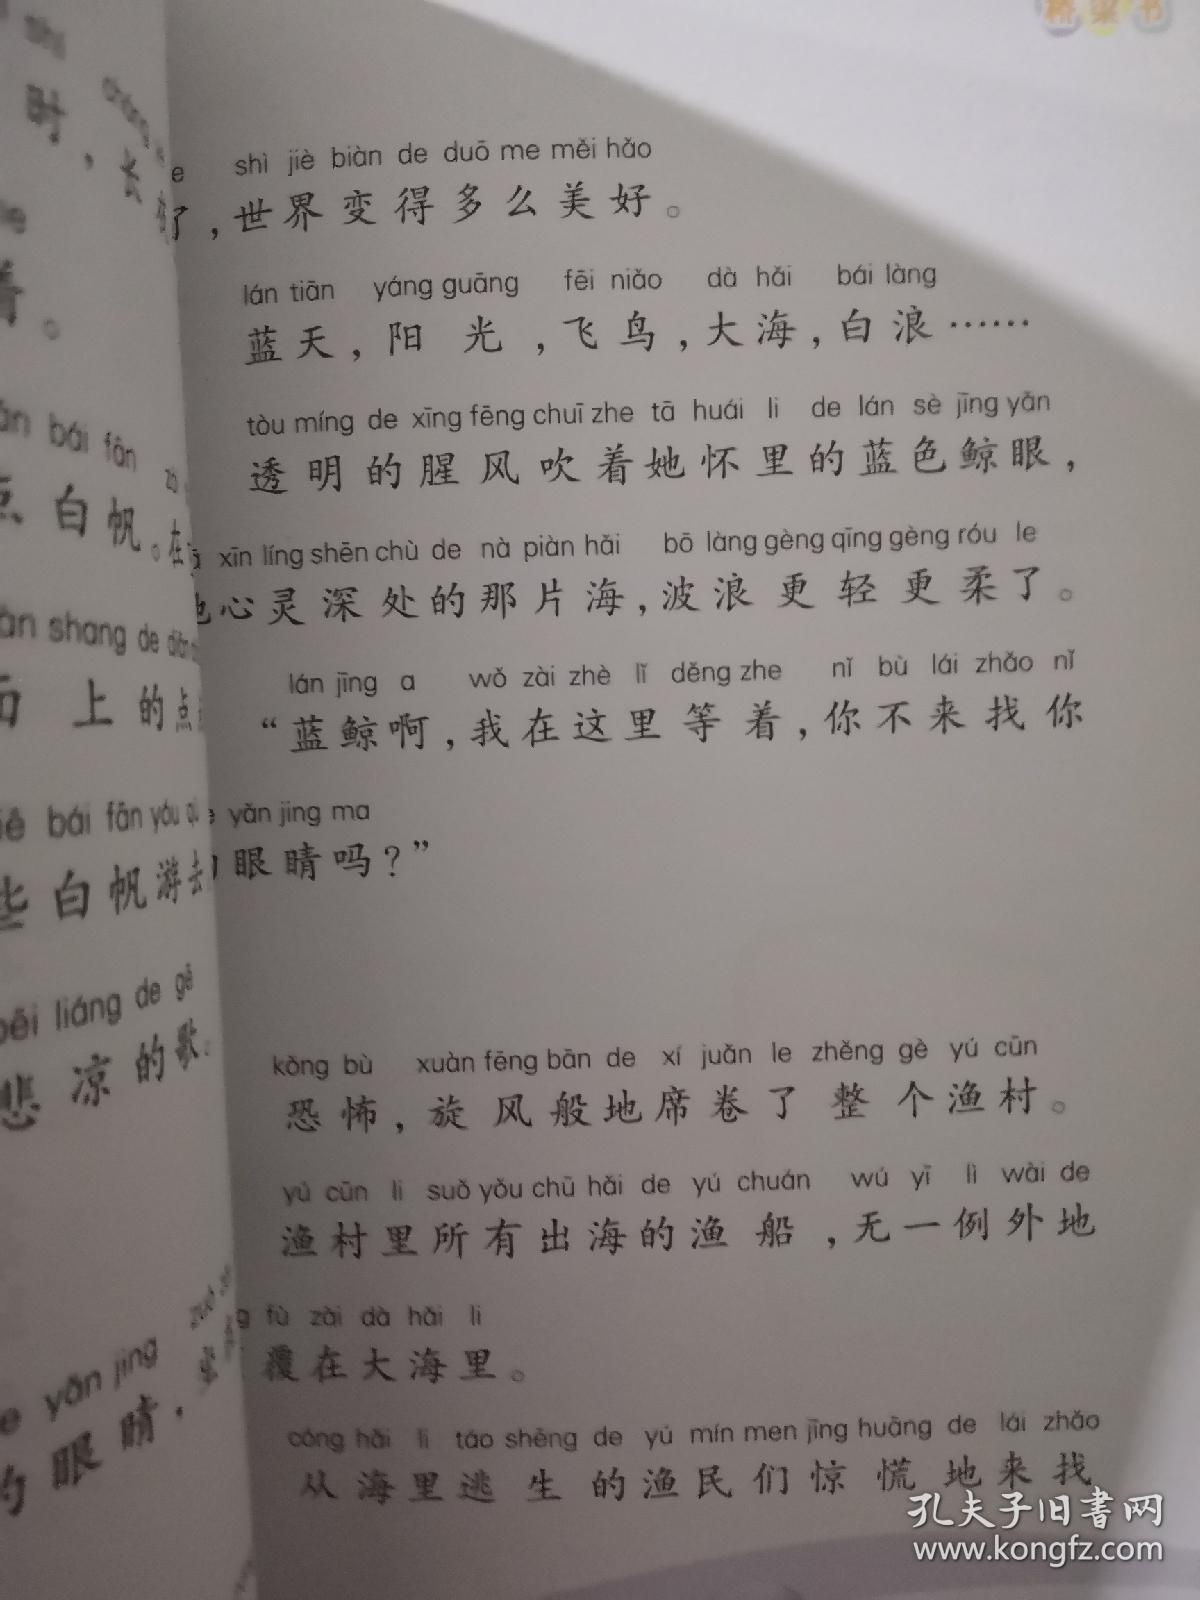 桥梁书
shì jiè biàn de duō me měi hǎo
了，世界变得多么美好。
lán tiān yáng guāng fēi niǎo dà hǎi bái làng
蓝天，阳光，飞鸟，大海，白浪……
tòu míng de xīng fēng chuī zhe tā huái li de lán sè jīng yǎn
透明的腥风吹着她怀里的蓝色鲸眼，
xīn líng shēn chù de nà piàn hǎi bō làng gèng qīng gèng róu le
心灵深处的那片海，波浪更轻更柔了。
lán jīng a wǒ zài zhè lǐ děng zhe nǐ bù lái zhǎo nǐ
“蓝鲸啊，我在这里等着，你不来找你
yǎn jing ma
眼睛吗？”
kǒng bù xuàn fēng bān de xí juǎn le zhěng gè yú cūn
恐怖，旋风般地席卷了整个渔村。
yú cūn li suǒ yǒu chū hǎi de yú chuán wú yī lì wài de
渔村里所有出海的渔船，无一例外地
fù zài dà hǎi li
覆在大海里。
cóng hǎi li táo shēng de yú mín men jīng huāng de lái zhǎo
从海里逃生的渔民们惊慌地来找
时，长
着。
bái fān
白帆。在
shang de
上的点
bái fān yóu
些白帆游去
liáng de gē
悲凉的歌
yǎn jing
的眼睛，
孔夫子旧书网
www.kongfz.com